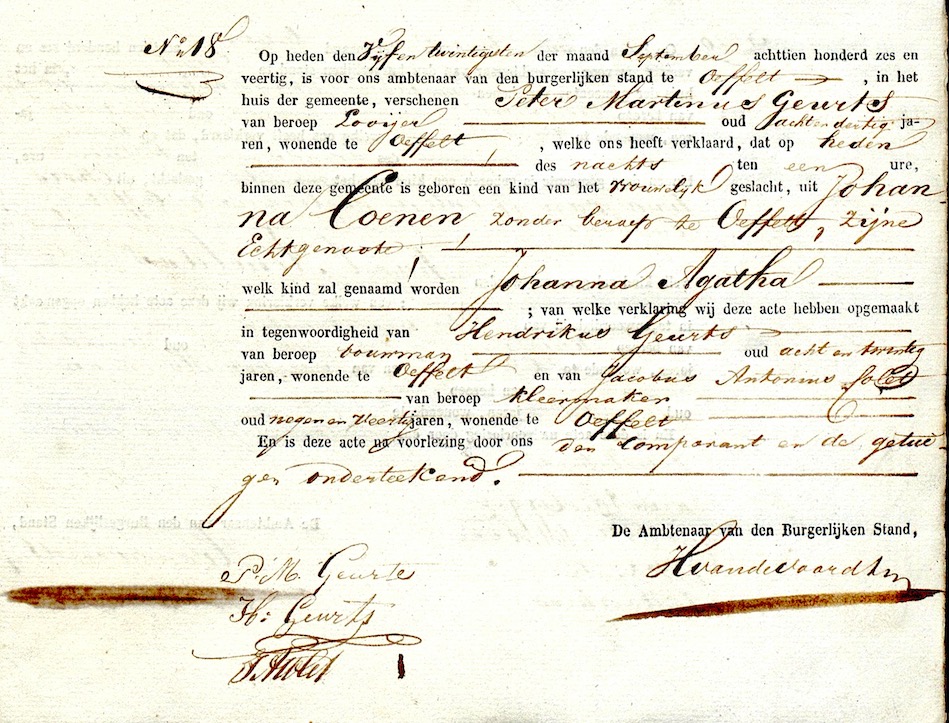 No 18
Op heden den Vijf en twintigsten der maand September achttien honderd zes en
veertig, is voor ons ambtenaar van den burgerlijken stand te Oeffelt , in het
huis der gemeente, verschenen Peter Martinus Geurts
van beroep Looijer oud acht en dertig ja-
ren, wonende te Oeffelt , welke ons heeft verklaard, dat op heden
des nachts ten een ure,
binnen deze gemeente is geboren een kind van het vrouwelijk geslacht, uit Johan
na Coenen zonder beroep te Oeffelt, zijne
Echtgenoote ;
welk kind zal genaamd worden Johanna Agatha
; van welke verklaring wij deze acte hebben opgemaakt
in tegenwoordigheid van Hendrikus Geurts
van beroep bouwman oud acht en twintig
jaren, wonende te Oeffelt en van Jacobus Antonius
van beroep kleermaker
oud negen en veertig jaren, wonende te Oeffelt
En is deze acte na voorlezing door ons den Comparant en de getui-
gen onderteekend.
De Ambtenaar van den Burgerlijken Stand,
P. M. Geurts
H: Geurts